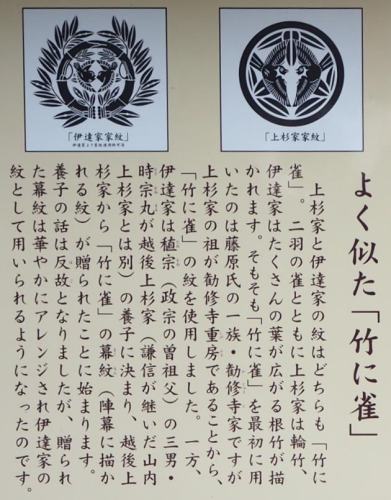 よく似た「竹に雀」
上杉家と伊達家の紋はどちらも「竹に
雀」。二羽の雀とともに上杉家は輪竹、
伊達家はたくさんの葉が広がる根竹が描
かれます。そもそも「竹に雀」を最初に用
いたのは藤原氏の一族・勧修寺家ですが
上杉家の祖が勧修寺重房であることから、
「竹に雀」の紋を使用しました。一方、
伊達家は稙宗（政宗の曽祖父）の三男・
時宗丸が越後上杉家（謙信が継いだ山内
上杉家とは別）の養子に決まり、越後上
杉家から「竹に雀」の幕紋（陣幕に描か
れる紋）が贈られたことに始まります。
養子の話は反故となりましたが、贈られ
た幕紋は華やかにアレンジされ伊達家の
紋として用いられるようになったのです。
「上杉家家紋」
「伊達家家紋」